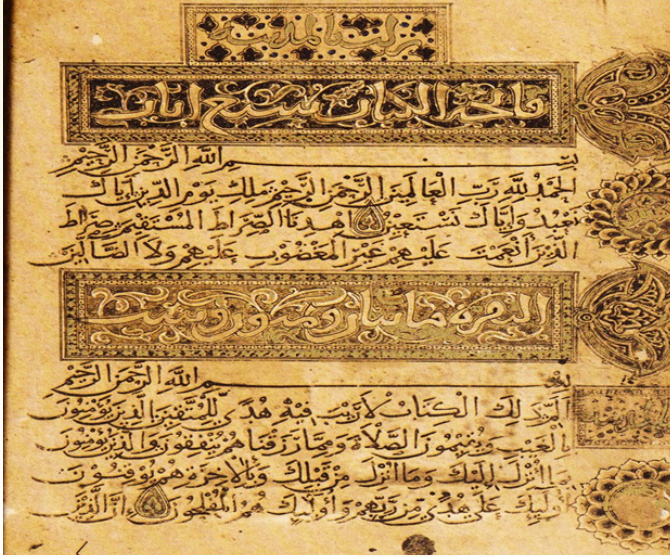 نزلت بالمدينة
فاتحة الكتاب سبع ايات
بسم الله الرحمن الرحيم
الحمد لله رب العالمين الرحمن الرحيم ملك يوم الدين اياك
نعبد واياك نستعين اهدنا الصراط المستقيم صراط
الذين انعمت عليهم غير المغضوب عليهم ولا الضالين
البقرة مايتان وثمنون وست
بسم الله الرحمن الرحيم
الم ذلك الكتاب لا ريب فيه هدى للمتقين الذين يؤمنون
بالغيب ويقيمون الصلاة ومما رزقناهم ينفقون والذين يؤمنون
بما انزل اليك وما انزل من قبلك وبالاخرة هم يوقنون
اوليك على هدى من ربهم واوليك هم المفلحون ان الذين